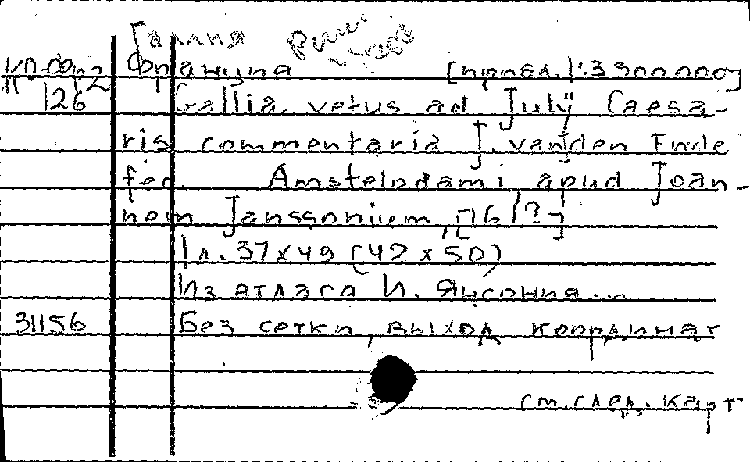 Галлия Рим
К0-Фр2 Франция [прибл. 1:3300000]
126 Gallia vetus ad Julÿ Caesa-
ris commentaria J. vanden Ende
fec. Amstelodami, apud Joan-
nem Janssonium, [16!?]
1 л. 37x49 (42x50)
Из атласа И. Янсония...
31156 Без сетки, выход координат
см. след. карт